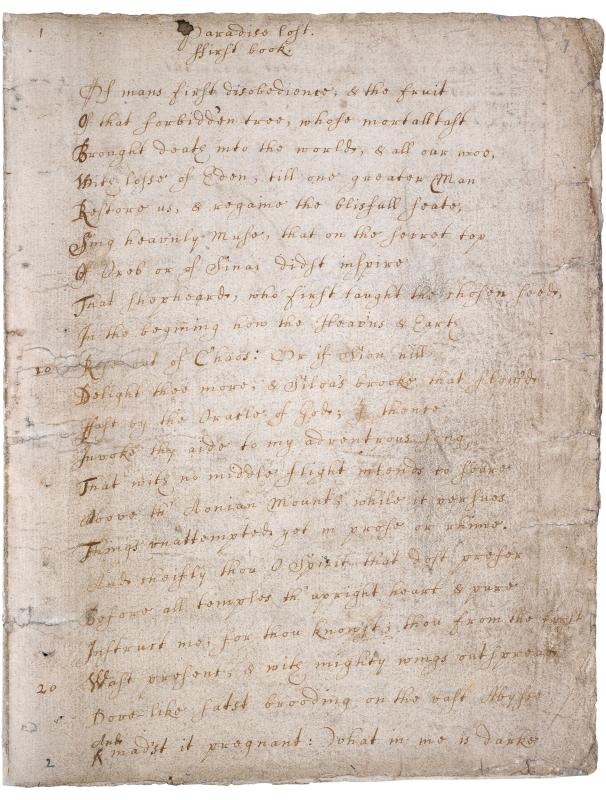 1 Paradise lost. 7
ffirst book.
Of mans first disobedience, & the fruit
Of that forbidden tree, whose mortall tast
Brought death into the world, & all our woe,
With losse of Eden, till one greater Man
Restore us, & regaine the blissfull seate,
Sing heavnly Muse, that on the secret top
Of Oreb or of Sinai didst inspire
That shepheard, who first taught the chosen seed,
In the beginning how the Heavns & Earth
10 Rose out of Chaos: Or if Sion hill
Delight thee more, & Siloa's brooke that flow'd
ffast by the Oracle of God; I thence
Invoke thy aide to my adventrous song,
That with no middle flight intends to soare
Above th' Aonian Mount, while it persues
Things unattempted yet in prose or rhime.
And cheifly thou O Spirit that dost prefer
Before all temples th' upright heart & pure
Instruct me, for thou knowst; thou from the first
20 Wast present, & with mighty wings outspread
Dove like satst brooding on the vast Abysse
And
2 madst it pregnant: What in me is darke